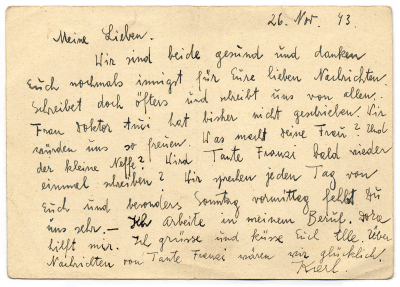 26. Nov. 43.
Meine Lieben.
Wir sind beide gesund und danken
Euch nochmals innigst für Eure lieben Nachrichten
Schreibet doch öfters und schreibt uns von allen.
Frau Doktor hat bisher nicht geschrieben. Wir
würden uns so freuen. Was macht Deine Frau? Und
der kleine Neffe? Wird Tante Franzi bald wieder
einmal schreiben? Wir sprechen jeden Tag von
Euch und besonders Sonntag vormittag fehlst Du
uns sehr. — Ich arbeite in meinem Beruf. Dora
hilft mir. Ich grüsse und küsse Euch Alle. Über
Nachrichten von Tante Franzi wären wir glücklich.
Karl.